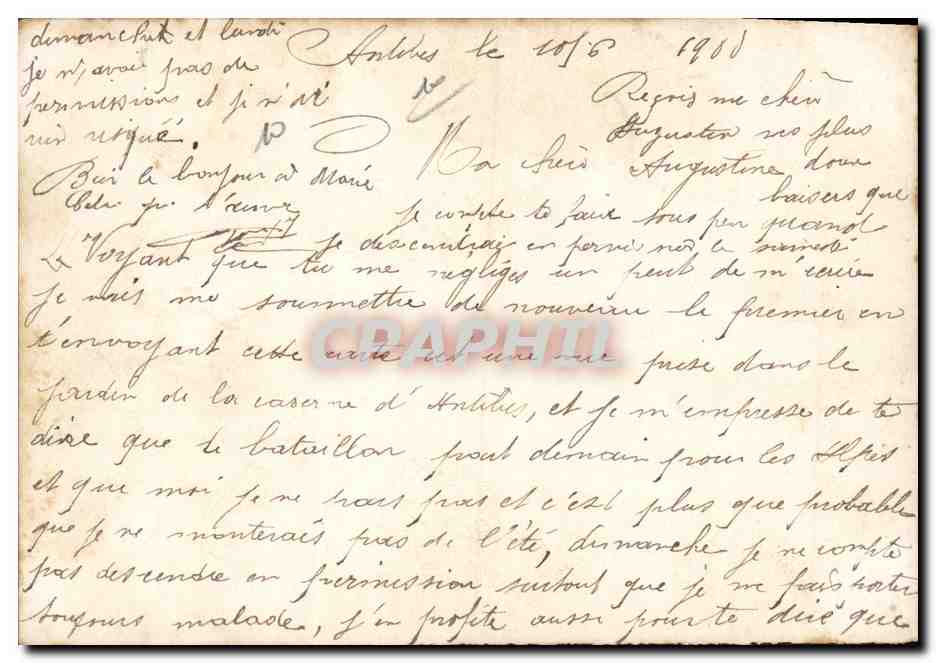 Antibes le 10/6 1900
Ma chère Augustine
Voyant que tu me négliges un peut de m'écrire
je vais me soumettre de nouveau le premier en
t'envoyant cette carte est une vue prise dans le
jardin de la caserne d'Antibes, et je m'empresse de te
dire que le bataillon part demain pour les Alpes
et que moi je ne pars pas et c'est plus que probable
que je ne monterais pas de l'été, dimanche je ne compte
pas descendre en permission surtout que je me fais porter
toujours malade, j'en profite aussi pour te dire que
dimanche et lundi
je n'avais pas de
permissions et je n'ai
rien risqué.
je compte te faire sous peu quand
je descendrai en
Reçois ma chère
Augustine mes plus
doux
baisers que
Bien le bonjour à Marie
CPARPHIL